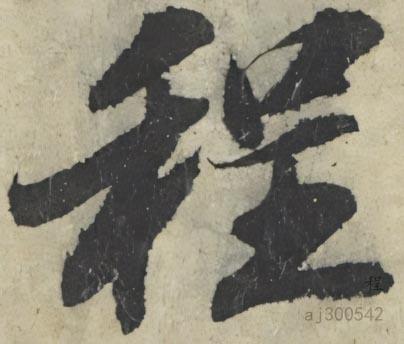 程
程
aj300542